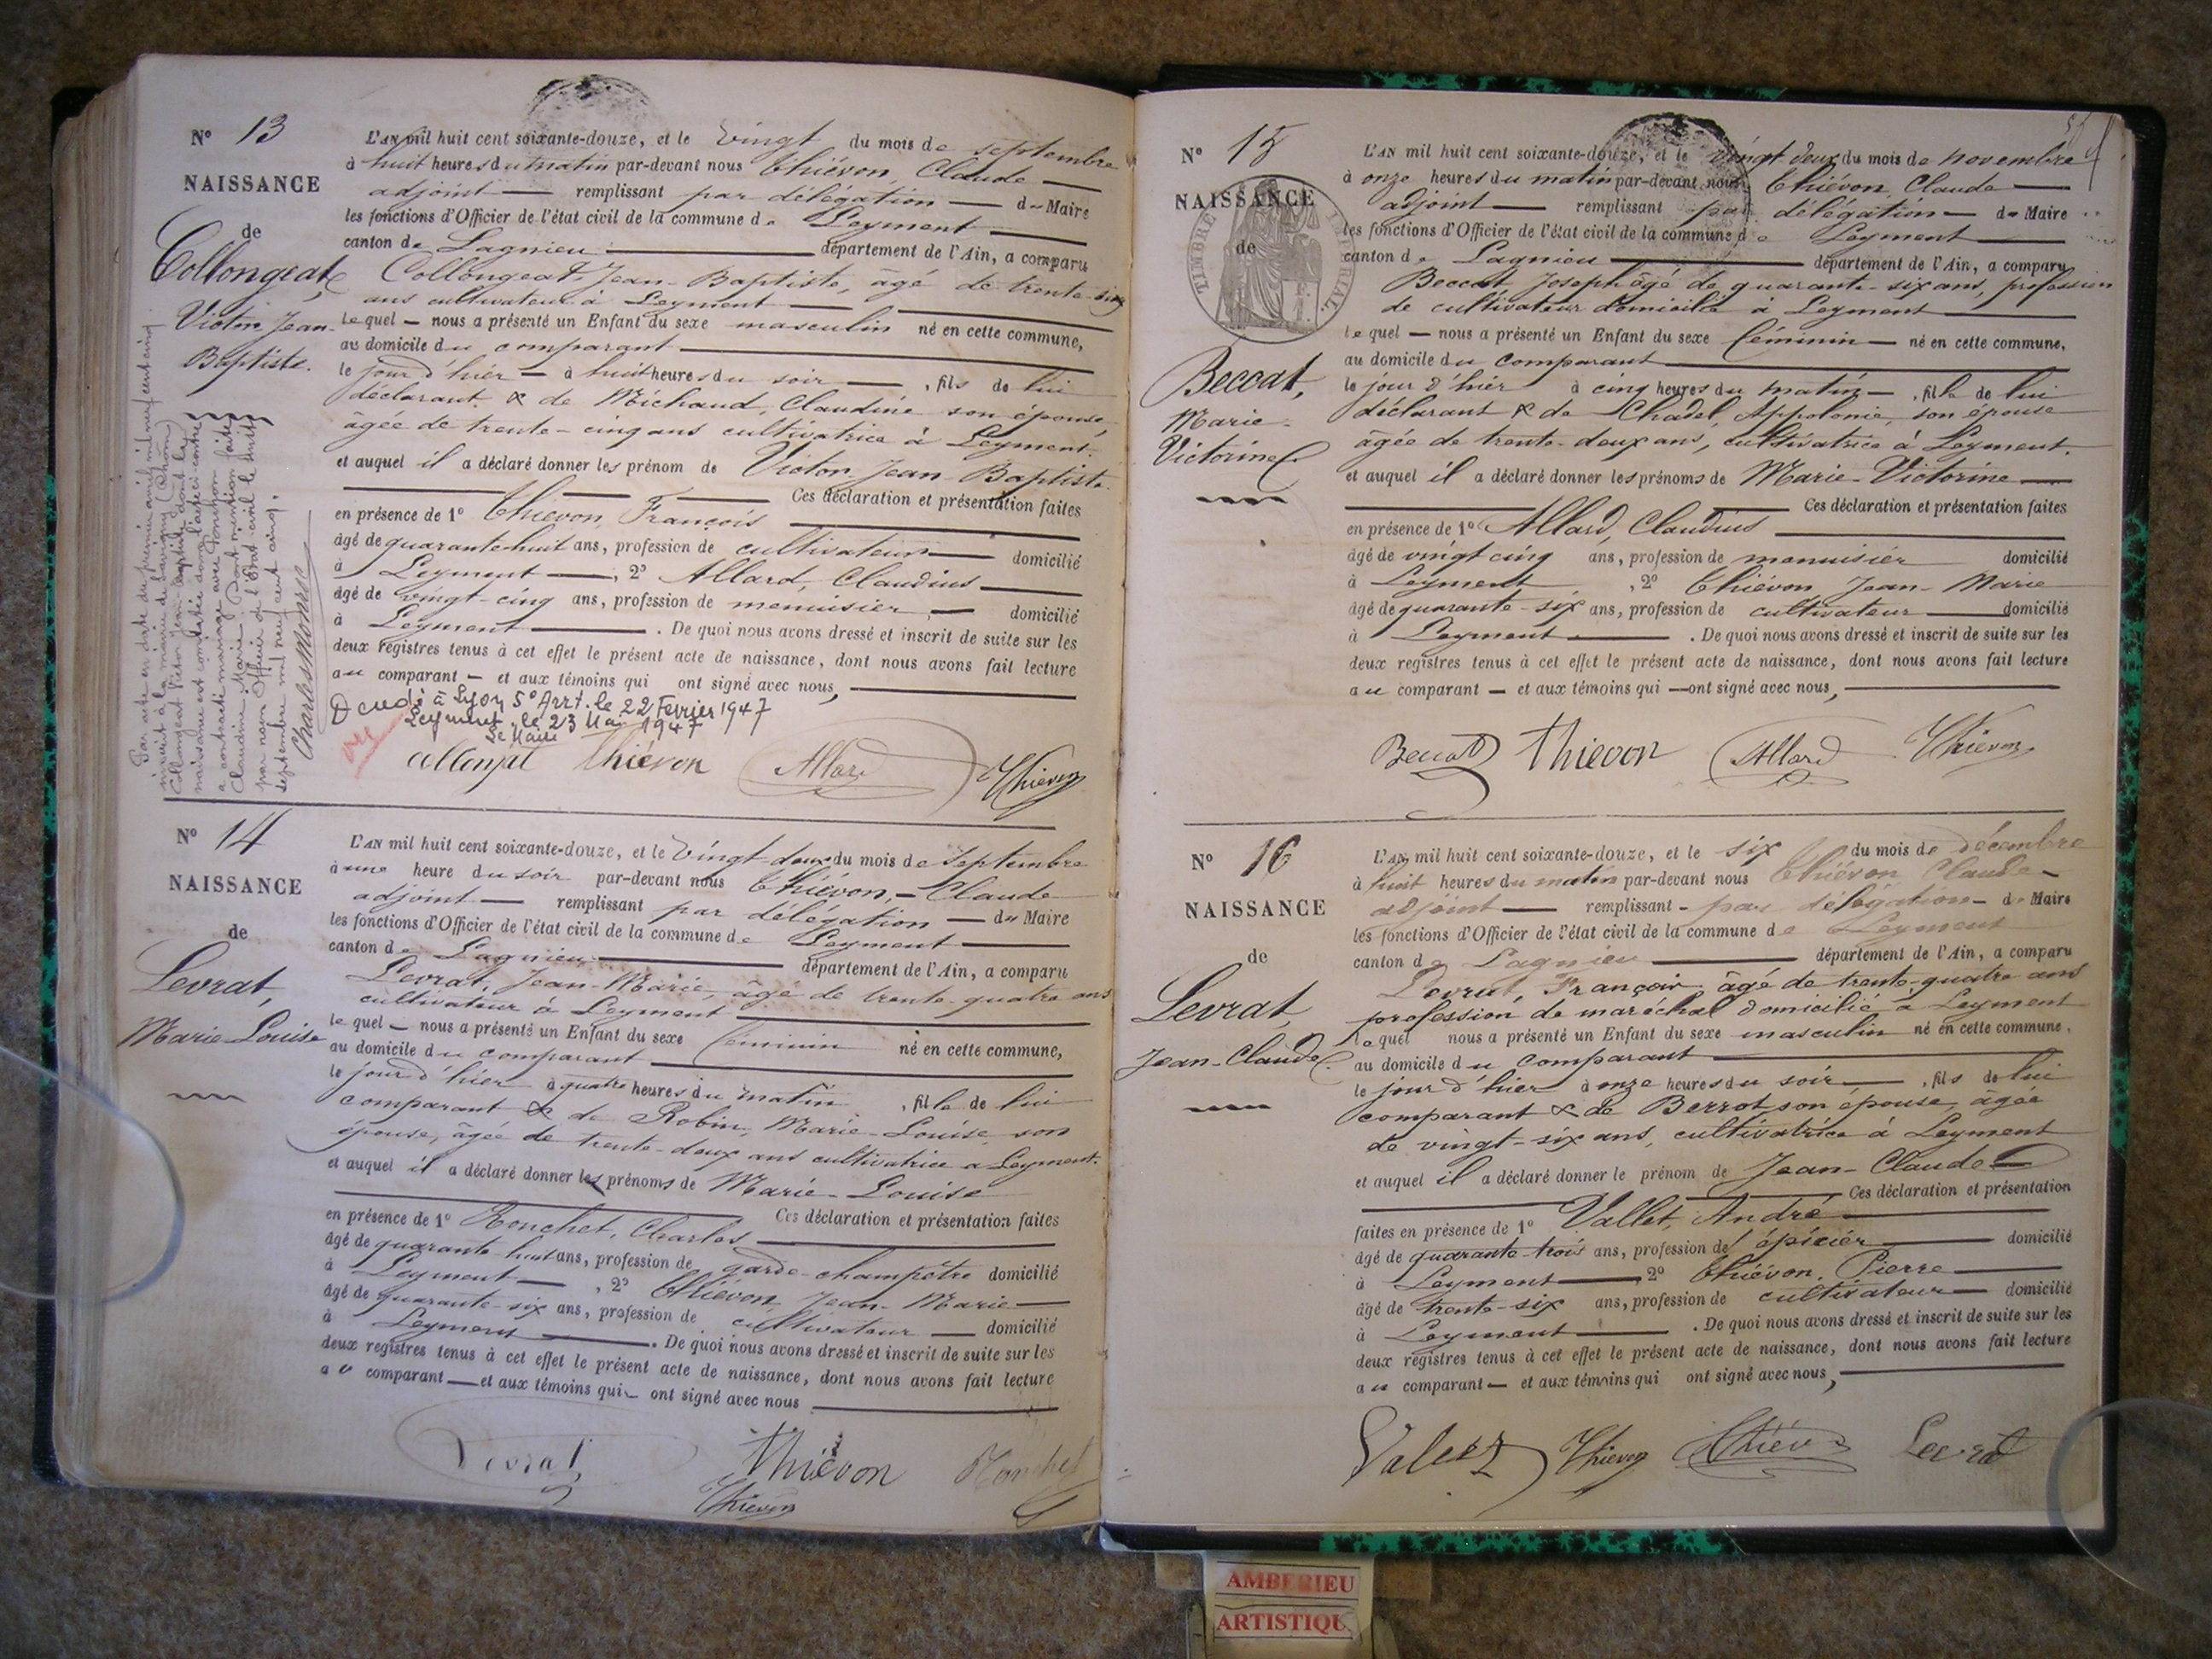 N° 13
NAISSANCE
de
Collongeat
Victor Jean-
Baptiste.
L'AN mil huit cent soixante-douze, et le vingt du mois de septembre
à huit heures du matin par-devant nous Thiévon, Claude
adjoint remplissant par délégation du Maire
les fonctions d'Officier de l'état civil de la commune de Leyment
canton de Lagnieu département de l'Ain, a comparu
Collongeat Jean-Baptiste, âgé de trente-cinq
ans cultivateur à Leyment
lequel nous a présenté un Enfant du sexe masculin né en cette commune,
au domicile du comparant
le jour d'hier à huit heures du soir, fils de lui
déclarant & de Michaud, Claudine son épouse,
âgée de trente-cinq ans cultivatrice à Leyment.
et auquel il a déclaré donner les prénom de Victor Jean-Baptiste.
Ces déclaration et présentation faites
en présence de 1° Thiévon, François
âgé de quarante-huit ans, profession de cultivateur domicilié
à Leyment, 2° Allard, Claudius
âgé de vingt-cinq ans, profession de menuisier, domicilié
à Leyment. De quoi nous avons dressé et inscrit de suite sur les
deux registres tenus à cet effet le présent acte de naissance, dont nous avons fait lecture
au comparant et aux témoins qui ont signé avec nous,
Décédé à Lyon 5° Arrt. le 22 Février 1947
Leyment, le 23 Mai 1947
Le Maire
Collonjat Thiévon Allard Thiévon
Par acte en date du premier avril mil neuf cent cinq
inscrit à la mairie de Savigny (Rhône)
Collongeat Victor Jean-Baptiste dont la
naissance est constatée dans l'acte ci-contre
a contracté mariage avec Ponchon
Claudine Marie. Dont mention faite
par nous Officier de l'Etat civil le huit
septembre mil neuf cent cinq.
N° 14
NAISSANCE
de
Levrat,
Marie-Louise
L'AN mil huit cent soixante-douze, et le vingt deux du mois de septembre
à une heure du soir par-devant nous Thiévon, Claude
adjoint remplissant par délégation du Maire
les fonctions d'Officier de l'état civil de la commune de Leyment
canton de Lagnieu département de l'Ain, a comparu
Levrat, Jean-Marie, âgé de trente-quatre ans
cultivateur à Leyment
lequel nous a présenté un Enfant du sexe féminin né en cette commune,
au domicile du comparant
le jour d'hier à quatre heures du matin, fille de lui
comparant & de Robin, Marie-Louise, son
épouse, âgée de trente-deux ans cultivatrice a Leyment.
et auquel il a déclaré donner les prénoms de Marie-Louise
Ces déclaration et présentation faites
en présence de 1° Ronchet, Charles
âgé de quarante-huit ans, profession de garde-champêtre domicilié
à Leyment, 2° Thiévon, Jean-Marie
âgé de quarante-six ans, profession de cultivateur domicilié
à Leyment. De quoi nous avons dressé et inscrit de suite sur les
deux registres tenus à cet effet le présent acte de naissance, dont nous avons fait lecture
au comparant et aux témoins qui ont signé avec nous
Levrat Thiévon Ronchet
Thiévon
N° 15
NAISSANCE
de
TIMBRE IMPERIAL
Beccat,
Marie-
Victorine
L'AN mil huit cent soixante-douze, et le vingt deux du mois de novembre
à onze heures du matin par-devant nous Thiévon, Claude
adjoint remplissant par délégation de Maire
les fonctions d'Officier de l'état civil de la commune de Leyment
canton de Lagnieu département de l'Ain, a comparu
Beccat, Joseph âgé de quarante-six ans, profession
de cultivateur domicilié à Leyment
lequel nous a présenté un Enfant du sexe féminin né en cette commune,
au domicile du comparant
le jour d'hier à cinq heures du matin, fille de lui
déclarant & de Chadel, Appolonie, son épouse
âgée de trente-deux ans, cultivatrice à Leyment.
et auquel il a déclaré donner les prénoms de Marie-Victorine
Ces déclaration et présentation faites
en présence de 1° Allard, Claudius
âgé de vingt cinq ans, profession de menuisier domicilié
à Leyment, 2° Thiévon Jean-Marie
âgé de quarante-six ans, profession de cultivateur domicilié
à Leyment. De quoi nous avons dressé et inscrit de suite sur les
deux registres tenus à cet effet le présent acte de naissance, dont nous avons fait lecture
au comparant et aux témoins qui ont signé avec nous,
Beccat Thiévon Allard Thiévon
N° 16
NAISSANCE
de
Levrat,
Jean-Claude.
L'AN mil huit cent soixante-douze, et le six du mois de décembre
à huit heures du matin par-devant nous Thiévon Claude
adjoint remplissant par délégation de Maire
les fonctions d'Officier de l'état civil de la commune de Leyment
canton de Lagnieu département de l'Ain, a comparu
Levrat, François âgé de trente-quatre ans
profession de maréchal domicilié à Leyment
lequel nous a présenté un Enfant du sexe masculin né en cette commune,
au domicile du comparant
le jour d'hier à onze heures du soir, fils de lui
comparant & de Berrot son épouse, âgée
de vingt-six ans, cultivatrice à Leyment
et auquel il a déclaré donner le prénom de Jean-Claude
Ces déclaration et présentation
faites en présence de 1° Vallet, André
âgé de quarante-trois ans, profession de épicier domicilié
à Leyment 2° Thiévon, Pierre
âgé de trente-six ans, profession de cultivateur domicilié
à Leyment. De quoi nous avons dressé et inscrit de suite sur les
deux registres tenus à cet effet le présent acte de naissance, dont nous avons fait lecture
au comparant et aux témoins qui ont signé avec nous,
Thiévon Thiévon Levrat
AMBERIEU
ARTISTIQU